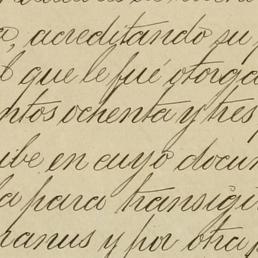 acreditando su p
que le fué otorga
ntos ochenta y tres
ibe en cuyo docum
la para transigi
ranus y por otra p